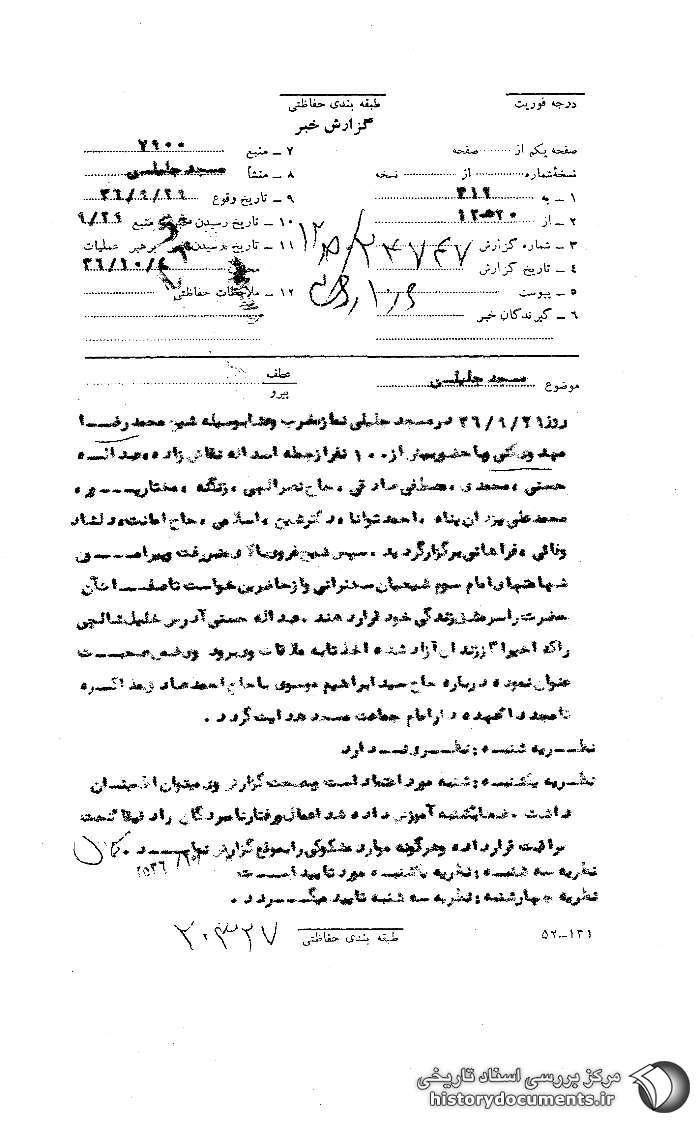 درجه فوریت
طبقه بندی حفاظتی
گزارش خبر
صفحه یکم از صفحه
نسخهٔ شماره از نسخه
۱ ــ به ۳۱۲
۲ ــ از ۲۰ه۱۲
۳ ــ شماره گزارش
۴ ــ تاریخ گزارش
۵ ــ پیوست
۶ ــ گیرندگان خبر
۷ ــ منبع ۷۹۰۰
۸ ــ منشأ مسجد جلیلی
۹ ــ تاریخ وقوع ۳۶/۹/۲۹
۱۰ ــ تاریخ رسیدن خبر به منبع ۹/۲۹
۱۱ ــ تاریخ رسیدن خبر به رهبر عملیات
۳۶/۱۰/۴
۱۲ ــ ملاحظات حفاظتی
موضوع مسجد جلیلی
عطف
پیرو
روز ۳۶/۹/۲۹ در مسجد جلیلی نماز مغرب و عشا بوسیله شیخ محمد رضا
مهدوی کنی و با حضور بیش از ۱۰۰ نفر از جمله اسداله نقاش زاده ، عبداله
حسنی ، محمدی ، مصطفی صادقی ، حاج نصرالهی ، زنگنه ،
محمد علی یزدان پناه ، احمد توانا ، دکتر شیخ ، اسلامی ، حاج امانت ، دلشاد
وفائی ، فراهانی برگزار گردید . سپس شیخ غروی بالای منبر رفت و پیرامون
شهادتهای امام سوم شیعیان سخنرانی و از حاضرین خواست تا صفات آن
حضرت را سرمشق زندگی خود قرار دهند . عبداله حسنی آدرس خلیل
را که اخیرا از زندان آزاد شده اخذ تا به ملاقات وی برود و در ضمن صحبت
عنوان نموده درباره حاج سید ابراهیم موسوی با حاج احمد صادقی مذاکره
تا مجددا عهده دار امام جماعت مسجد هدایت گردد .
نظریه شنبه : نظری ندارد
نظریه یکشنبه : شنبه مورد اعتماد است و بصحت گزارش وی میتوان اطمینان
داشت . ضمنا بشنبه آموزش داده شد اعمال و رفتار نامبردگان را دقیقا تحت
مراقبت قرار داده و هرگونه موارد مشکوکی را بموقع گزارش نماید .
نظریه سه شنبه : نظریه یکشنبه مورد تایید است
نظریه چهارشنبه : نظریه سه شنبه تایید میگردد .
طبقه بندی حفاظتی
۵۲ــ۱۲۱
مرکز بررسی اسناد تاریخی
historydocuments.ir